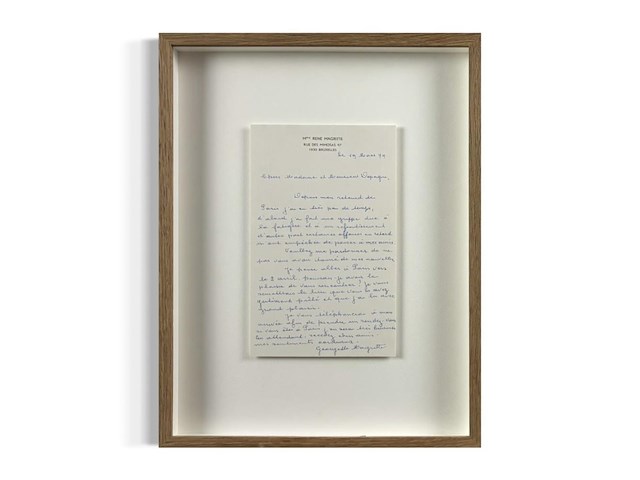 Mme RENÉ MAGRITTE
RUE DES MIMOSAS 97
1030 BRUXELLES
le 19 Mars 79
Chers Madame et Monsieur
Depuis mon retour de
Paris j'ai eu
d'abord j'ai fait une grippe due à
la fatigue et à un refroidissement
d'autre part certaines affaires en retard
m'ont empêchée de penser à mes amis
Veuillez me pardonner de ne
pas vous avoir donné de mes nouvelles
Je pense aller à Paris vers
le 2 avril pourrais-je avoir le
plaisir de vous rencontrer? je vous
remettrais le livre que vous m'avez
gentiment prêté et que j'ai lu avec
grand plaisir.
Je vous téléphonerai à mon
arrivée afin de prendre un rendez-vous
si vous êtes à Paris j'en serai très heureuse
En attendant, recevez chers amis
mes sentiments cordiaux.
Georgette Magritte